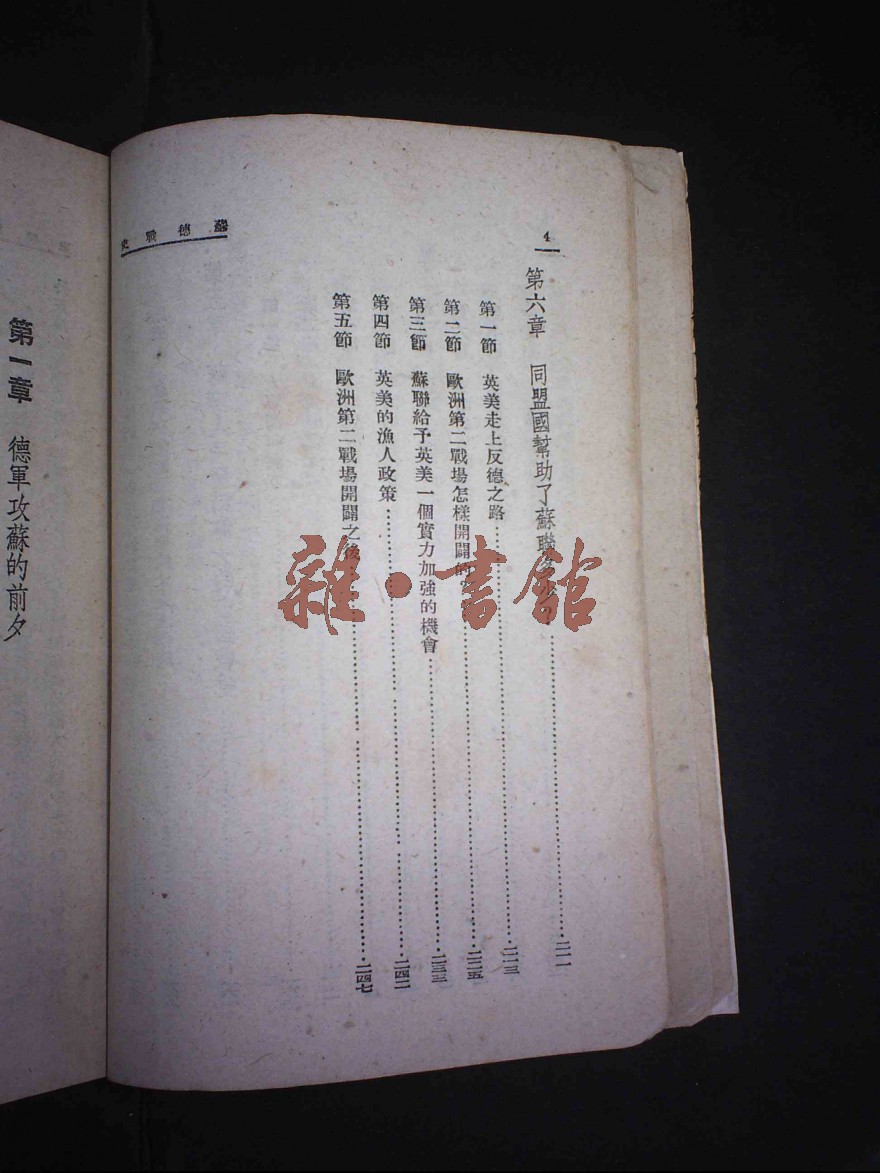 蘇德戰史
4
第六章 同盟國幫助了蘇聯
第一節 英美走上反德之路……二一三
第二節 歐洲第二戰場怎樣開闢的……二二五
第三節 蘇聯給予英美一個實力加強的機會……二三三
第四節 英美的漁人政策……二四二
第五節 歐洲第二戰場開闢之後……二四七
二一一
第一章 德軍攻蘇的前夕
雜·書館